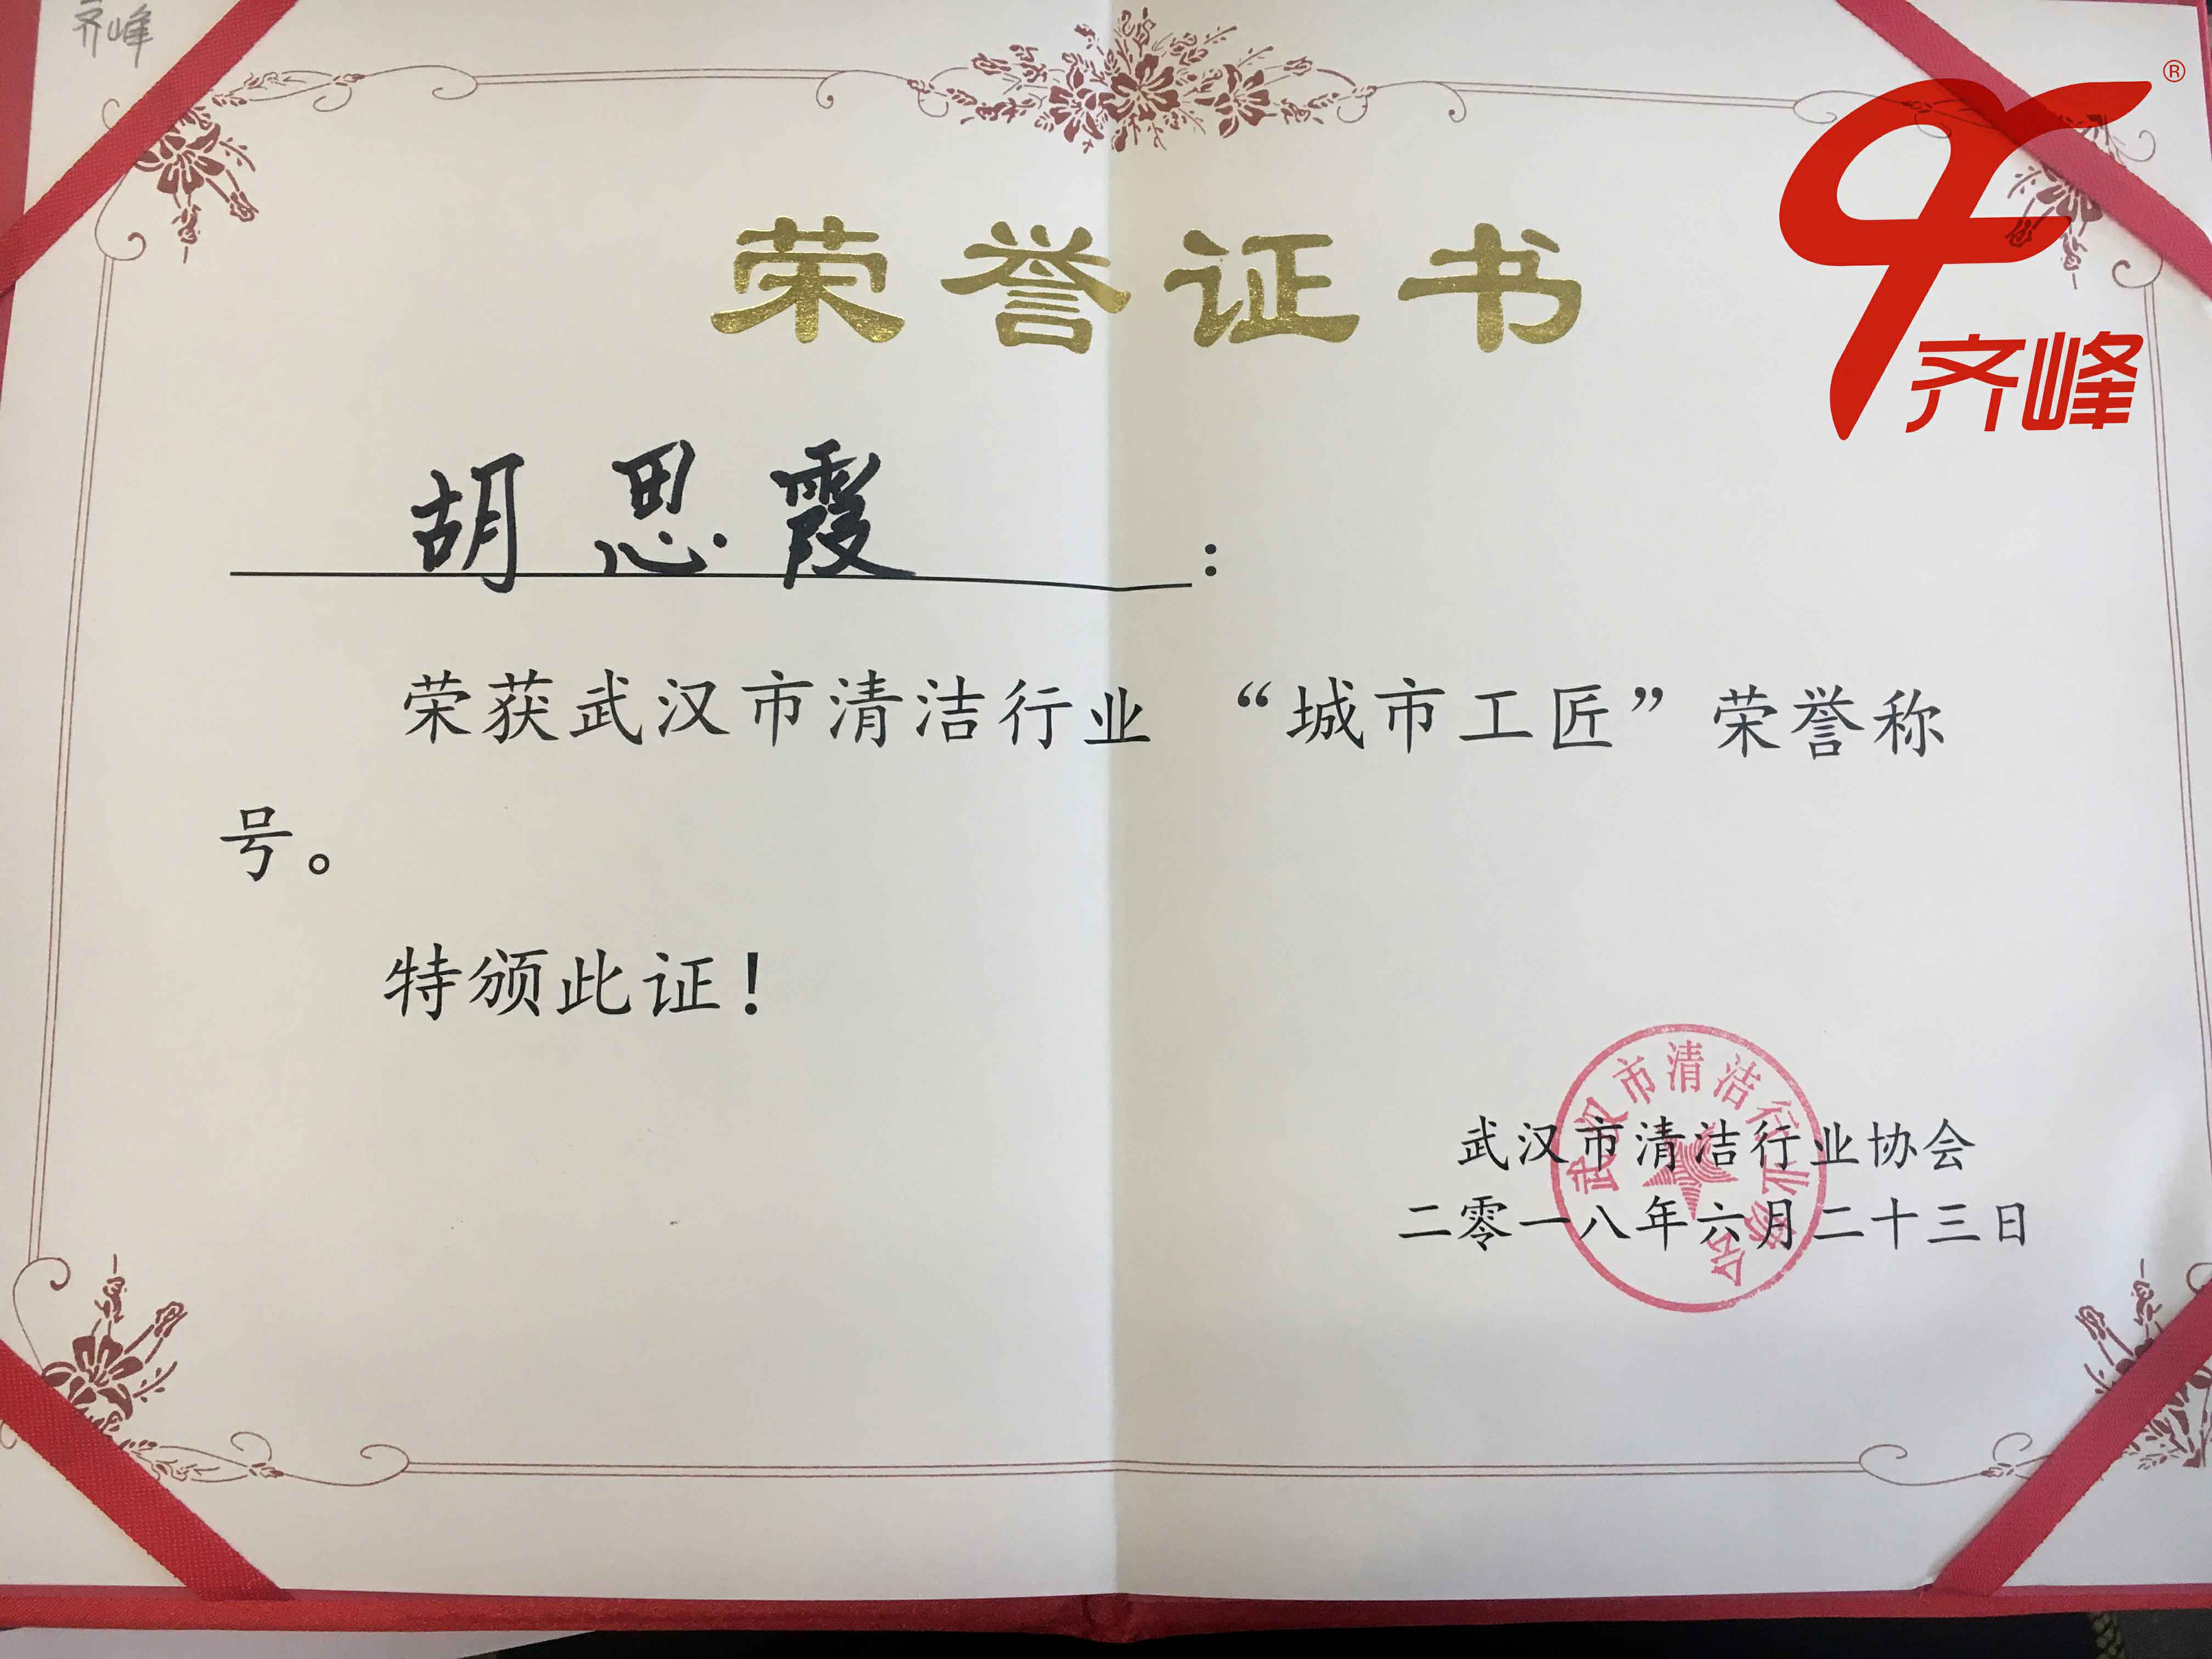 齐峰
®
齐峰
荣誉证书
胡思霞：
荣获武汉市清洁行业“城市工匠”荣誉称
号。
特颁此证！
武汉市清洁行业协会
武汉市清洁行业协会
二零一八年六月二十三日